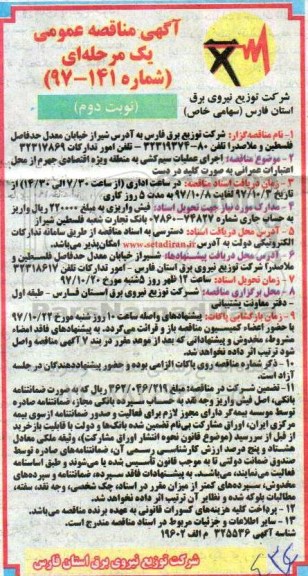 آگهی مناقصه عمومی
یک مرحله‌ای
(شماره ۱۴۱-۹۷)
(نوبت دوم)
شرکت توزیع نیروی برق
استان فارس (سهامی خاص)
۱- نام مناقصه‌گزار: شرکت توزیع برق فارس به آدرس شیراز خیابان معدل حدفاصل
فلسطین و ملاصدرا تلفن ۸۰-۳۲۳۱۹۳۷۴ - تلفن امور تدارکات ۳۲۳۱۷۸۶۹
۲- موضوع مناقصه: اجرای عملیات سیم‌کشی به منطقه ویژه اقتصادی جهرم از محل
اعتبارات عمرانی به صورت کلید در دست
۳- زمان دریافت اسناد مناقصه: در ساعت اداری (از ساعت ۷/۳۰ الی ۱۴/۳۰) از
تاریخ ۹۷/۱۰/۲ لغایت ۹۷/۱۰/۸ به مدت ۵ روز کاری
۴- مدارک مورد نیاز جهت تحویل اسناد: فیش واریزی به مبلغ ۲۲۰۰۰۰ ریال واریز
به حساب جاری شماره ۷۴۸۲۷-۷۸۶۰ بانک تجارت شعبه فلسطین شیراز
۵- آدرس محل دریافت اسناد: دسترسی به اسناد مناقصه از طریق سامانه تدارکات
الکترونیکی دولت به آدرس www.setadiran.ir امکان‌پذیر می‌باشد.
۶- آدرس محل دریافت پیشنهادها: شیراز خیابان معدل حدفاصل فلسطین و
ملاصدرا شرکت توزیع نیروی برق استان فارس - امور تدارکات تلفن ۳۲۳۱۸۶۱۷
۷- زمان تحویل اسناد: ساعت ۱۲ ظهر روز ۵شنبه مورخ ۹۷/۱۰/۲۰
۸- محل برگزاری مناقصه: شرکت توزیع نیروی برق استان فارس - طبقه اول
- دفتر معاونت پشتیبانی
۹- زمان بازگشایی پاکات: پیشنهادهای واصله ساعت ۱۰ روز شنبه مورخ ۹۷/۱۰/۲۲
با حضور اعضاء کمیسیون مناقصه باز و قرائت می‌گردد. به پیشنهادهای فاقد امضاء
مشروط، مخدوش و پیشنهاداتی که بعد از موعد مقرر در بند ۷ آگهی مناقصه واصل
شود ترتیب اثر داده نخواهد شد.
۱۰- ذکر شماره مناقصه روی پاکات الزامی بوده و حضور پیشنهاددهندگان در جلسه
آزاد است.
۱۱- تضمین شرکت در مناقصه: مبلغ ۳۶۲/۰۴۶/۲۱۹ ریال که به صورت ضمانتنامه
بانکی، اصل فیش واریز وجه نقد به حساب سپرده بانکی مجاز، ضمانتنامه صادره
توسط موسسه بیمه‌گر دارای مجوز لازم برای فعالیت و صدور ضمانتنامه ازسوی بیمه
مرکزی ایران، اوراق مشارکت بی‌نام تضمین شده بانک‌ها و دولت با قابلیت بازخرید
قبل از سررسید (موضوع قانون نحوه انتشار اوراق مشارکت)، وثیقه ملکی معادل
هشتاد و پنج درصد ارزش کارشناسی رسمی آن، ضمانتنامه‌های صادره توسط
صندوق ضمانت دولتی تا به موجب قانون تأسیس شده یا می‌شوند و طبق اساسنامه
فعالیت می‌نمایند، می‌باشد. به پیشنهادات فاقد سپرده، ضمانتنامه و سپرده‌های
مخدوش، سپرده‌های کمتر از میزان مقرر در اسناد، چک شخصی، وجه نقد، سفته،
مطالبات بلوکه شده و نظایر آن ترتیب اثر داده نخواهد شد.
۱۲- پرداخت کلیه هزینه‌های کسورات قانونی به عهده برنده مناقصه می‌باشد.
۱۳- سایر اطلاعات و جزئیات مربوط در اسناد مناقصه مندرج است.
شناسه آگهی ۳۳۵۵۳۶ م الف ۱۹۶۰۲
شرکت توزیع نیروی برق استان فارس